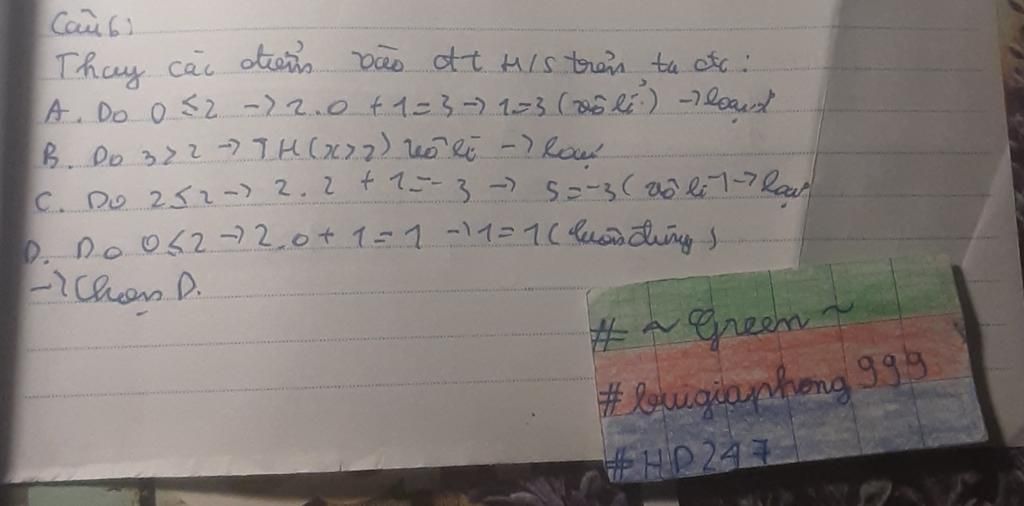 Câu 6:
Thay các điểm vào đt H/S trên ta đc:
A. Do 0 ≤ 2 → 2.0 + 1 = 3 → 1 = 3 (vô lí) → loại
B. Do 3 > 2 → TH (x > 2) vô lí → loại
C. Do 2 ≤ 2 → 2.2 + 1 = -3 → 5 = -3 (vô lí) → loại
D. Do 0 ≤ 2 → 2.0 + 1 = 1 → 1 = 1 (luôn đúng)
→ Chọn D.
# ~ Green ~
# luugiaphong999
# HD247